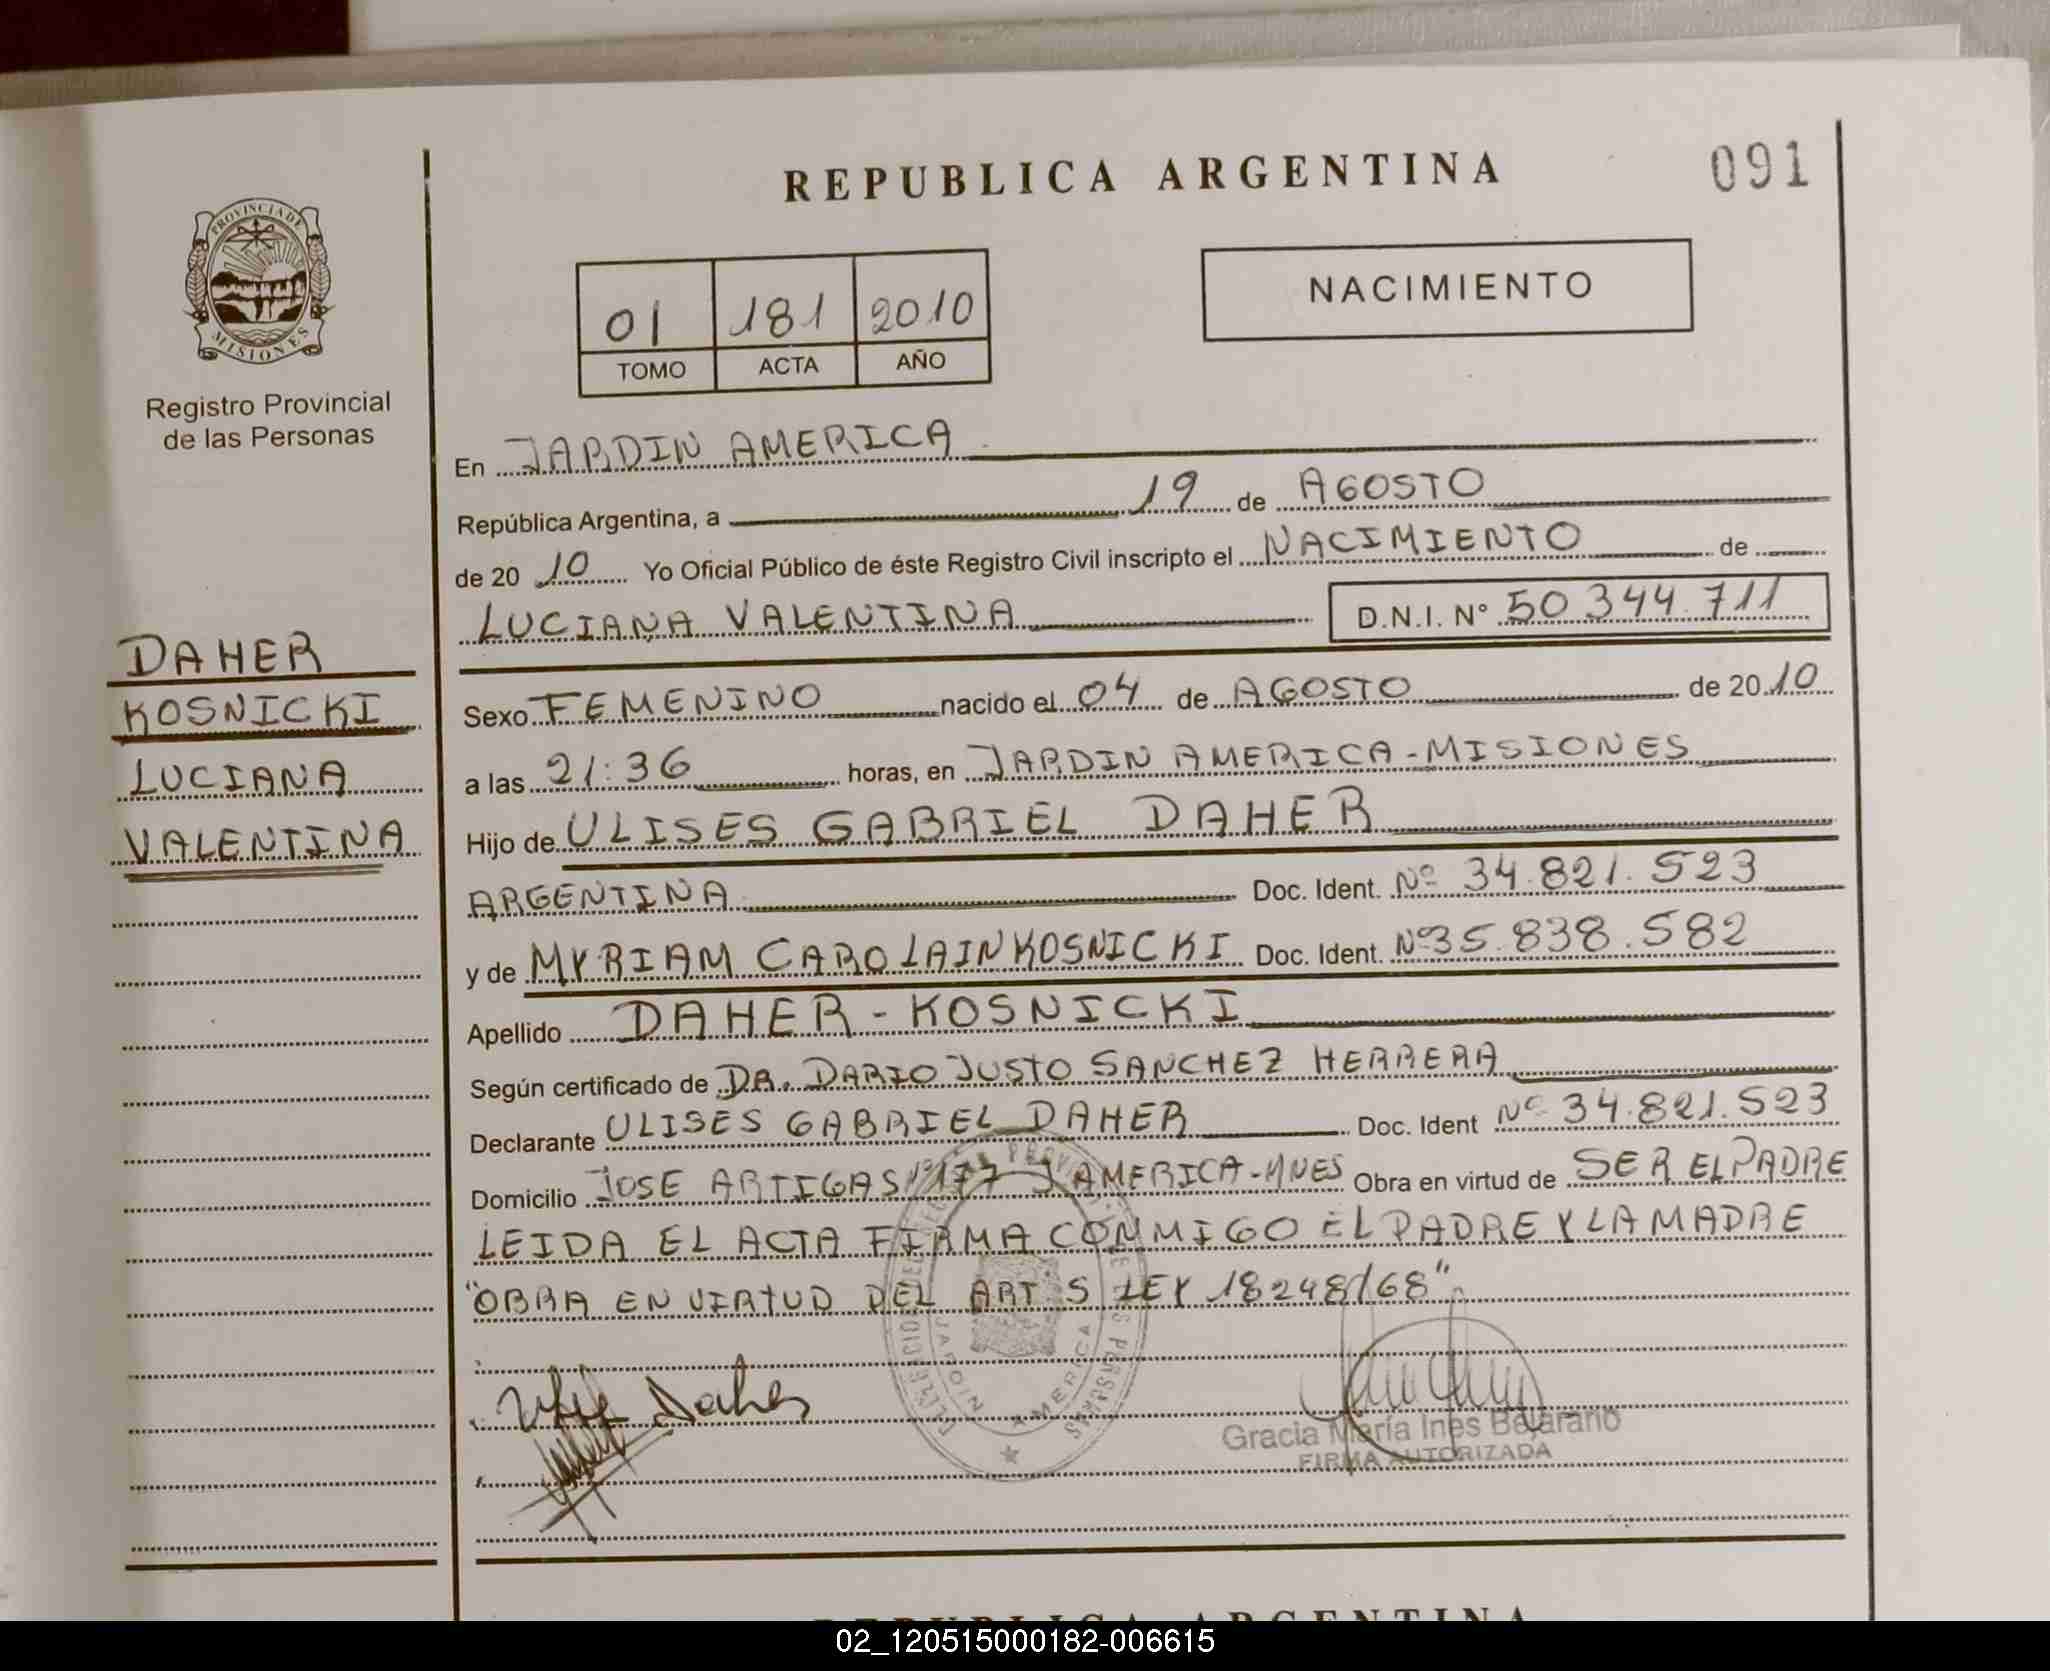 REPUBLICA ARGENTINA
091
PROVINCIA DE
MISIONES
Registro Provincial
de las Personas
01 181 2010
TOMO ACTA AÑO
NACIMIENTO
En JARDIN AMERICA
República Argentina, a 19 de AGOSTO
de 20 10 Yo Oficial Público de éste Registro Civil inscripto el NACIMIENTO de
LUCIANA VALENTINA D.N.I. N° 50.344.711
DAHER
KOSNICKI
LUCIANA
VALENTINA
Sexo FEMENINO nacido el 04 de AGOSTO de 20 10
a las 21:36 horas, en JARDIN AMERICA-MISIONES
Hijo de ULISES GABRIEL DAHER
ARGENTINA Doc. Ident. Nº 34.821.523
y de MYRIAM CAROLAIN KOSNICKI Doc. Ident. Nº 35.838.582
Apellido DAHER-KOSNICKI
Según certificado de DR. DARIO JUSTO SANCHEZ HERRERA
Declarante ULISES GABRIEL DAHER Doc. Ident Nº 34.821.523
Domicilio JOSE ARTIGAS 177 J. AMERICA-MNES Obra en virtud de SER EL PADRE
LEIDA EL ACTA FIRMA CONMIGO EL PADRE Y LA MADRE
"OBRA EN VIRTUD DEL ART 5 LEY 18248/68"
JARDIN AMERICA
Daher
Gracia María Ines Bejarano
FIRMA AUTORIZADA
REPUBLICA ARGENTINA
02_120515000182-006615